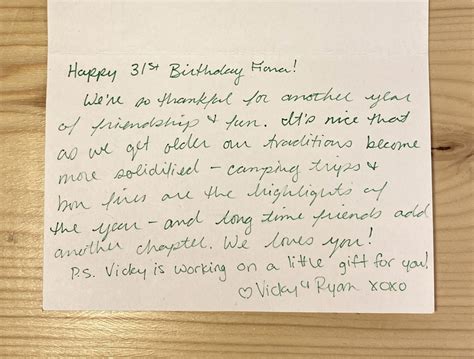 Happy 31st Birthday Fiona!
We're so thankful for another year
of friendship & fun. It's nice that
as we get older our traditions become
more solidified - camping trips &
bon fires are the highlights of
the year - and long time friends add
another chapter. We loves you!
P.S. Vicky is working on a little gift for you!
♡ Vicky & Ryan xoxo